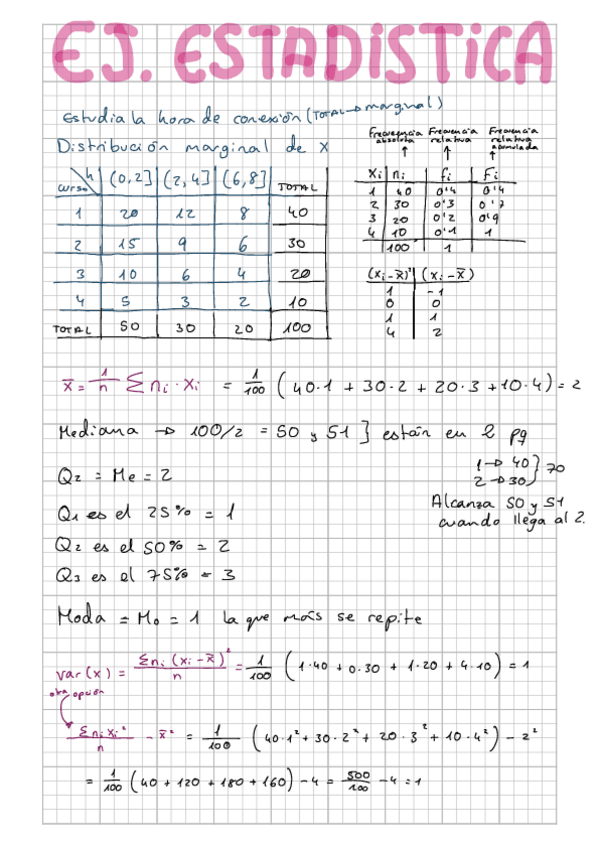 EJ. ESTADÍSTICA
Estudia la hora de conexión (TOTAL → marginal)
Distribución marginal de x
curso \ h | (0,2] | (2,4] | (6,8] | TOTAL
1 | 20 | 12 | 8 | 40
2 | 15 | 9 | 6 | 30
3 | 10 | 6 | 4 | 20
4 | 5 | 3 | 2 | 10
TOTAL | 50 | 30 | 20 | 100
Frecuencia absoluta ↑ Frecuencia relativa ↑ Frecuencia relativa acumulada ↑
xi | ni | fi | Fi
1 | 40 | 0'4 | 0'4
2 | 30 | 0'3 | 0'7
3 | 20 | 0'2 | 0'9
4 | 10 | 0'1 | 1
100 | 1
(xi - x̄)² | (xi - x̄)
1 | -1
0 | 0
1 | 1
4 | 2
x̄ = 1/n Σ ni · xi = 1/100 (40·1 + 30·2 + 20·3 + 10·4) = 2
Mediana → 100/2 = 50 y 51 } están en 2 pq
1 → 40 } 70
2 → 30
Alcanza 50 y 51
cuando llega al 2.
Q2 = Me = 2
Q1 es el 25% = 1
Q2 es el 50% = 2
Q3 es el 75% = 3
Moda = Mo = 1 la que más se repite
var(x) = Σni (xi - x̄)² / n = 1/100 (1·40 + 0·30 + 1·20 + 4·10) = 1
otra opción
Σni xi² / n - x̄² = 1/100 (40·1² + 30·2² + 20·3² + 10·4²) - 2²
= 1/100 (40 + 120 + 180 + 160) - 4 = 500/100 - 4 = 1